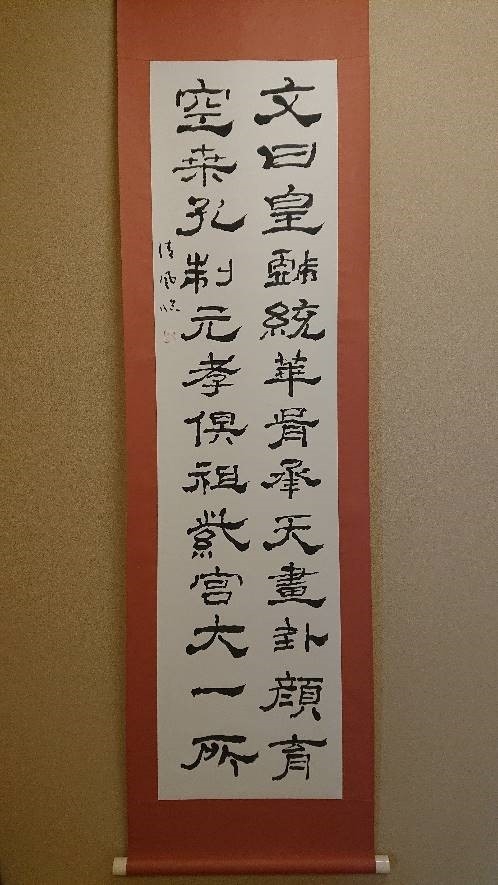 文曰皇戲統華胥承天畫卦顏育
空桒孔制元孝俱祖紫宮大一所
清風臨